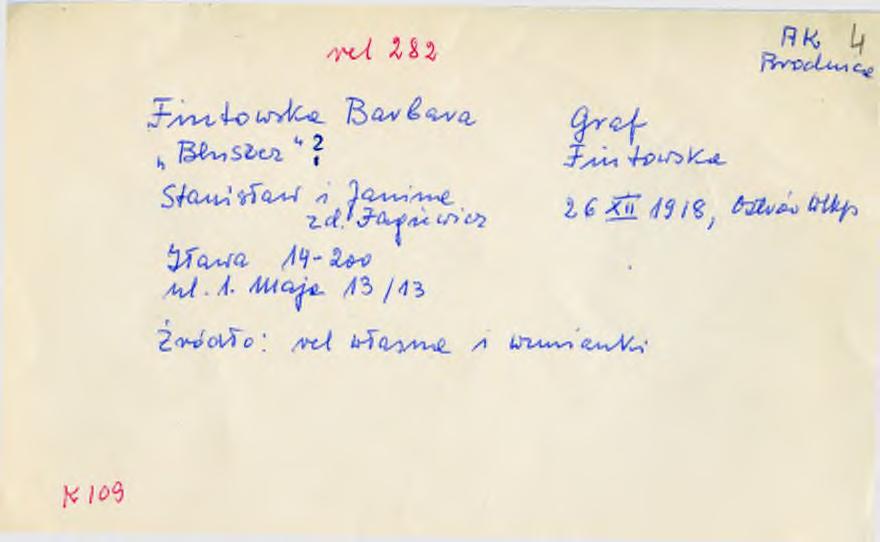 rel 282
AK 4
Brodnica
Fintowska Barbara
„Bluszcz" ?
Graf
Fintowska
Stanisław i Janina
zd.
26 XII 1918, Ostrów Wlkp
Iława 14-200
ul. 1. Maja 13/13
Źródło: rel własna i wzmianki
K 109